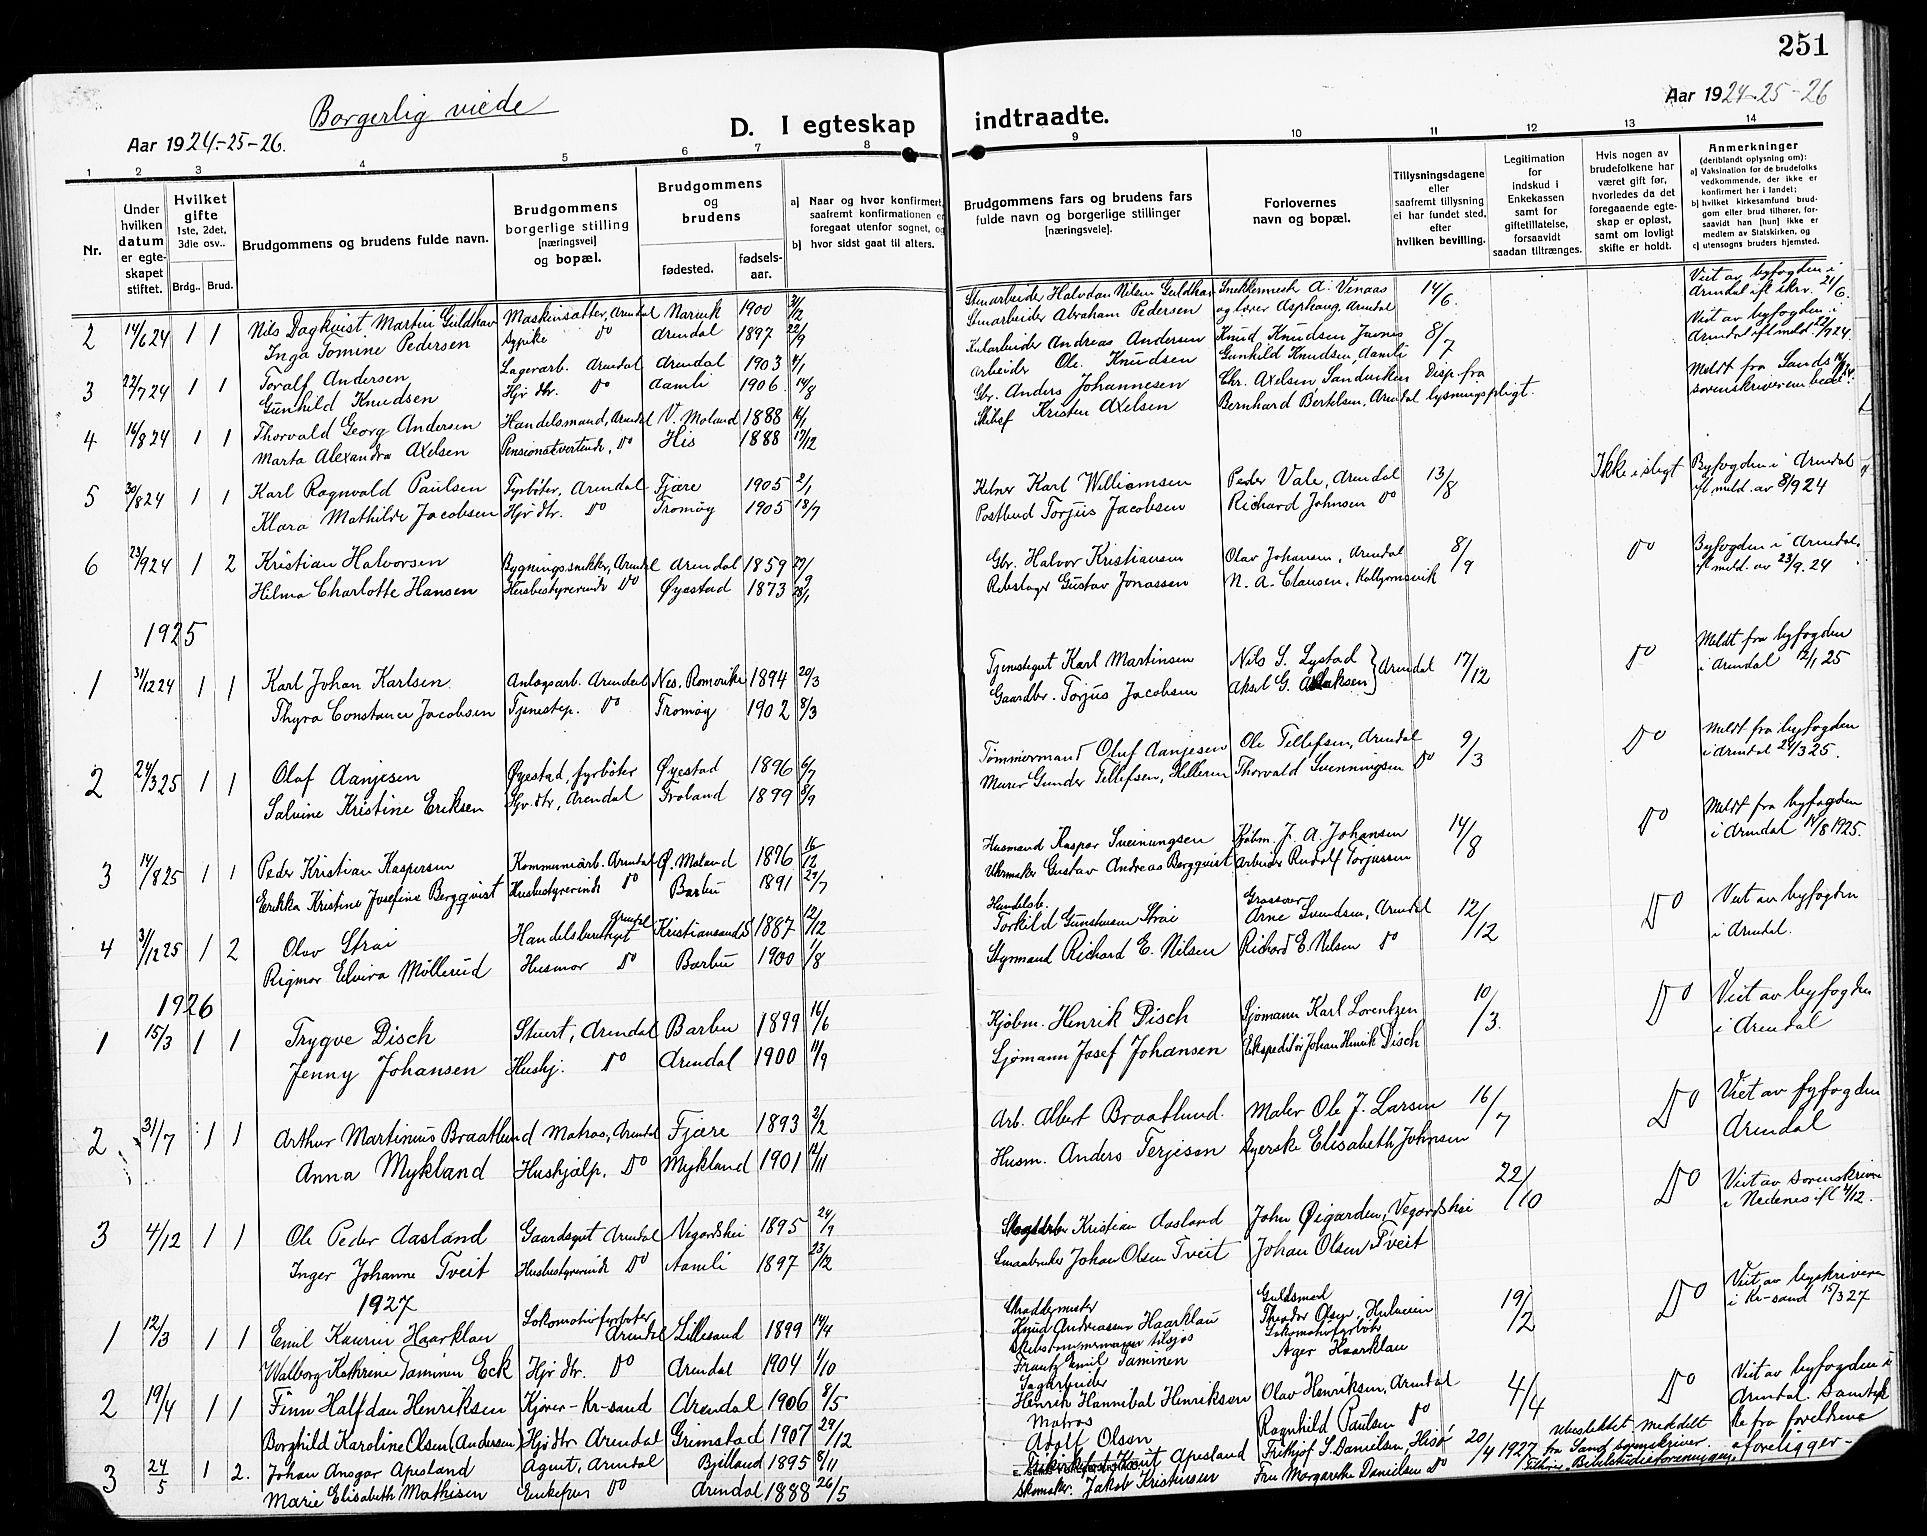 251
Borgerlig viede
Aar 1924-25-26.
D. I egteskap indtraadte.
Aar 1924-25-26
1 2 3 4 5 6 7 8 9 10 11 12 13 14
Nr.
Under hvilken datum er egteskapet stiftet.
Hvilket gifte 1ste, 2det, 3die osv..
Brdg.. Brud.
Brudgommens og brudens fulde navn.
Brudgommens borgerlige stilling [næringsvei] og bopæl.
Brudgommens og brudens
fødested. fødsels-aar.
a) Naar og hvor konfirmert, saafremt konfirmationen er foregaat utenfor sognet, og
b) hvor sidst gaat til alters.
Brudgommens fars og brudens fars fulde navn og borgerlige stillinger [næringsveie].
Forlovernes navn og bopæl.
Tillysningsdagene eller saafremt tillysning ei har fundet sted, efter hvilken bevilling.
Legitimation for indskud i Enkekassen samt for giftetillatelse, forsaavidt saadan tiltrænges.
Hvis nogen av brudefolkene har været gift før, hvorledes da det foregaaende egteskap er opløst, samt om lovligt skifte er holdt.
Anmerkninger (deriblandt oplysning om):
a) Vaksination for de brudefolks vedkommende, der ikke er konfirmert her i landet;
b) hvilket kirkesamfund brudgom eller brud tilhører, forsaavidt han [hun] ikke er medlem av Statskirken, og
c) utensogns bruders hjemsted.
2 14/6 24 1 1 Nils Dagkvist Martin Guldhav Maskinsætter, Arendal Narvik 1900 Stenarbeider Halvdan Nilsen Guldhav Snekkermester A. Vinaas 14/6. Viet av byfogden i
Inga Tomine Pedersen Sypike Do Arendal 1897 22/9 Stenarbeider Abraham Pedersen og lærer Asphaug, Arendal Arendal ifl. skrv. 21/6.
3 22/7 24 1 1 Toralf Andersen Lagerarb. Arendal Arendal 1903 Kularbeider Andreas Andersen Knud Knudsen 8/7 Viet av byfogden i
Gunhild Knudsen Hjv. dtr. Do Aamli 1906 14/8 Arbeider Ole Knudsen Gunhild Knudsen, Aamli Arendal ifl. meld.
4 16/8 24 1 1 Thorvald Georg Andersen Handelsmand, Arendal V. Moland 1888 Gbr. Anders Johannesen Chr. Axelsen Sandviken Disp. fra Meldt fra Sands
Marta Alexandra Axelsen Pensionatvertinde, Do His 1888 17/12 Skibsf Kristen Axelsen Bernhard Bertelsen, Arendal lysningspligt. sorenskriverembede
5 30/8 24 1 1 Karl Ragnvald Paulsen Fyrbøter, Arendal Fjære 1905 2/1 Kelner Karl Williamsen Peder Vale, Arendal 13/8 Ikke i slegt Byfogden i Arendal
Klara Mathilde Jacobsen Hjv dtr. Do Tromøy 1905 18/7 Postbud Torjus Jacobsen Richard Johnsen Do ifl. meld. av 8/9 24
6 23/9 24 1 2 Kristian Halvorsen Bygningssnekker, Arendal Arendal 1859 Gbr. Halvor Kristiansen Olav Johansen, Arendal 8/9 Do Byfogden i Arendal
Hilma Charlotte Hansen Husbestyrerinde Do Øyestad 1873 28/1 Rebslager Gustav Jonassen N. A. Clausen, Kolbjørnsvik ifl. meld. av 23/9. 24
1925
1 31/12 24 1 1 Karl Johan Karlsen Anlægsarb. Arendal Nes. Romerike 1894 20/3 Tjenestegut Karl Martinsen Nils S. Lystad 17/12 Do Meldt fra byfogden
Thyra Constance Jacobsen Tjenestep. Do Tromøy 1902 8/3 Gaardbr. Torjus Jacobsen Aksel G. Aslaksen } Arendal i Arendal 12/1 25
2 24/3 25 1 1 Olaf Aanjesen Øyestad, fyrbøter Øyestad 1896 6/7 Tømmermand Oluf Aanjesen Ole Tellefsen, Arendal 9/3 Do Meldt fra byfogden
Salvine Kristine Eriksen Hjv. dtr, Arendal Froland 1899 8/9 Murer Gunder Tellefsen, Hilleren Thorvald Svenningsen Do i Arendal 24/3 25.
3 14/8 25 1 1 Peder Kristian Kaspersen Kommunearb. Arendal Ø. Moland 1896 16/12 Husmand Kaspar Sveinungsen Kjøbm. J. A. Johansen 14/8 Do Meldt fra byfogden
Erikka Kristine Josefine Bergqvist Husbestyrerinde Do Barbu 1891 29/7 Urmaker Gustav Andreas Bergqvist Arbeider Rudolf Torjussen i Arendal 14/8 1925.
4 31/12 25 1 2 Olav Strai Handelsbetyret Arendal Kristiansand S 1887 12/12 Handelsb. Torkild Gunstensen Strai Grosserer Arne Svendsen, Arendal 12/12 Do Viet av byfogden
Rigmor Elvira Møllerud Husmor Do Barbu 1900 1/8 Styrmand Richard E. Nilsen Richard E. Nilsen Do i Arendal.
1926
1 15/3 1 1 Trygve Disch Stuert, Arendal Barbu 1899 16/6 Kjøbm. Henrik Disch Sjømann Karl Lorentzen 10/3. Do Viet av byfogden
Jenny Johansen Hushj. Do Arendal 1900 11/9 Sjømann Josef Johansen Ekspeditør Johan Henrik Disch i Arendal
2 31/7 1 1 Arthur Martinius Braatlund Matros, Arendal Fjære 1893 2/2 Arb. Albert Braatlund. Maler Ole J. Larsen 16/7 Do Viet av byfogden
Anna Mykland Hushjælp. Do Mykland 1901 12/11 Husm. Anders Terjesen Syerske Elisabeth Johnsen Arendal
3 4/12 1 1 Ole Peder Aasland Gaardsgut Arendal Vegardshei 1895 24/9 Kristian Aasland John Øigarden, Vegardshei 22/10 Do Viet av sorenskriver
Inger Johanne Tveit Husbestyrerinde Do Aamli 1897 23/12 Smaabruker Johan Olsen Tveit Johan Olsen Tveit i Nedenes ifl 4/12.
1927
1 12/3 1 1 Emil Kaurin Haarklau Lokomotivfyrbøter Arendal Lillesand 1899 14/4 Skraddermester Knud Andreassen Haarklau Guldsmed Theodor Olsen, Hulveien 19/2 Do Viet av byskriveren
Walborg Kathrine Taminen Eck Hjv dtr. Do Arendal 1904 1/10 Skibstømmermann tilsjøs Frantz Emil Taminen Lokomotivfyrbøter Ager Haarklau i Kr-sand 15/3 27
2 19/4 1 1 Finn Halfdan Henriksen Kjører - Kr-sand Arendal 1906 8/5 Sagarbeider Henrik Hannibal Henriksen Olav Henriksen, Arendal 4/4 Do Viet av byfogden i
Borghild Karoline Olsen (Andersen) Hjv dtr Arendal Grimstad 1907 29/12 Matros Adolf Olsen Ragnhild Paulsen Do Arendal. Samtykke fra foreldrene
3 24/5 1 2. Johan Ansgar Apesland Agent, Arendal Bjelland 1895 8/11 Knut Apesland Fritjof S. Danielsen, Hisø 20/4 1927 Uteslektet meddelt fra Sand sorenskriver foreligger -
Marie Elisabeth Mathisen Enkefru Do Arendal 1888 26/5 Skomaker. Jakob Kristensen Fru Margarethe Danielsen Do